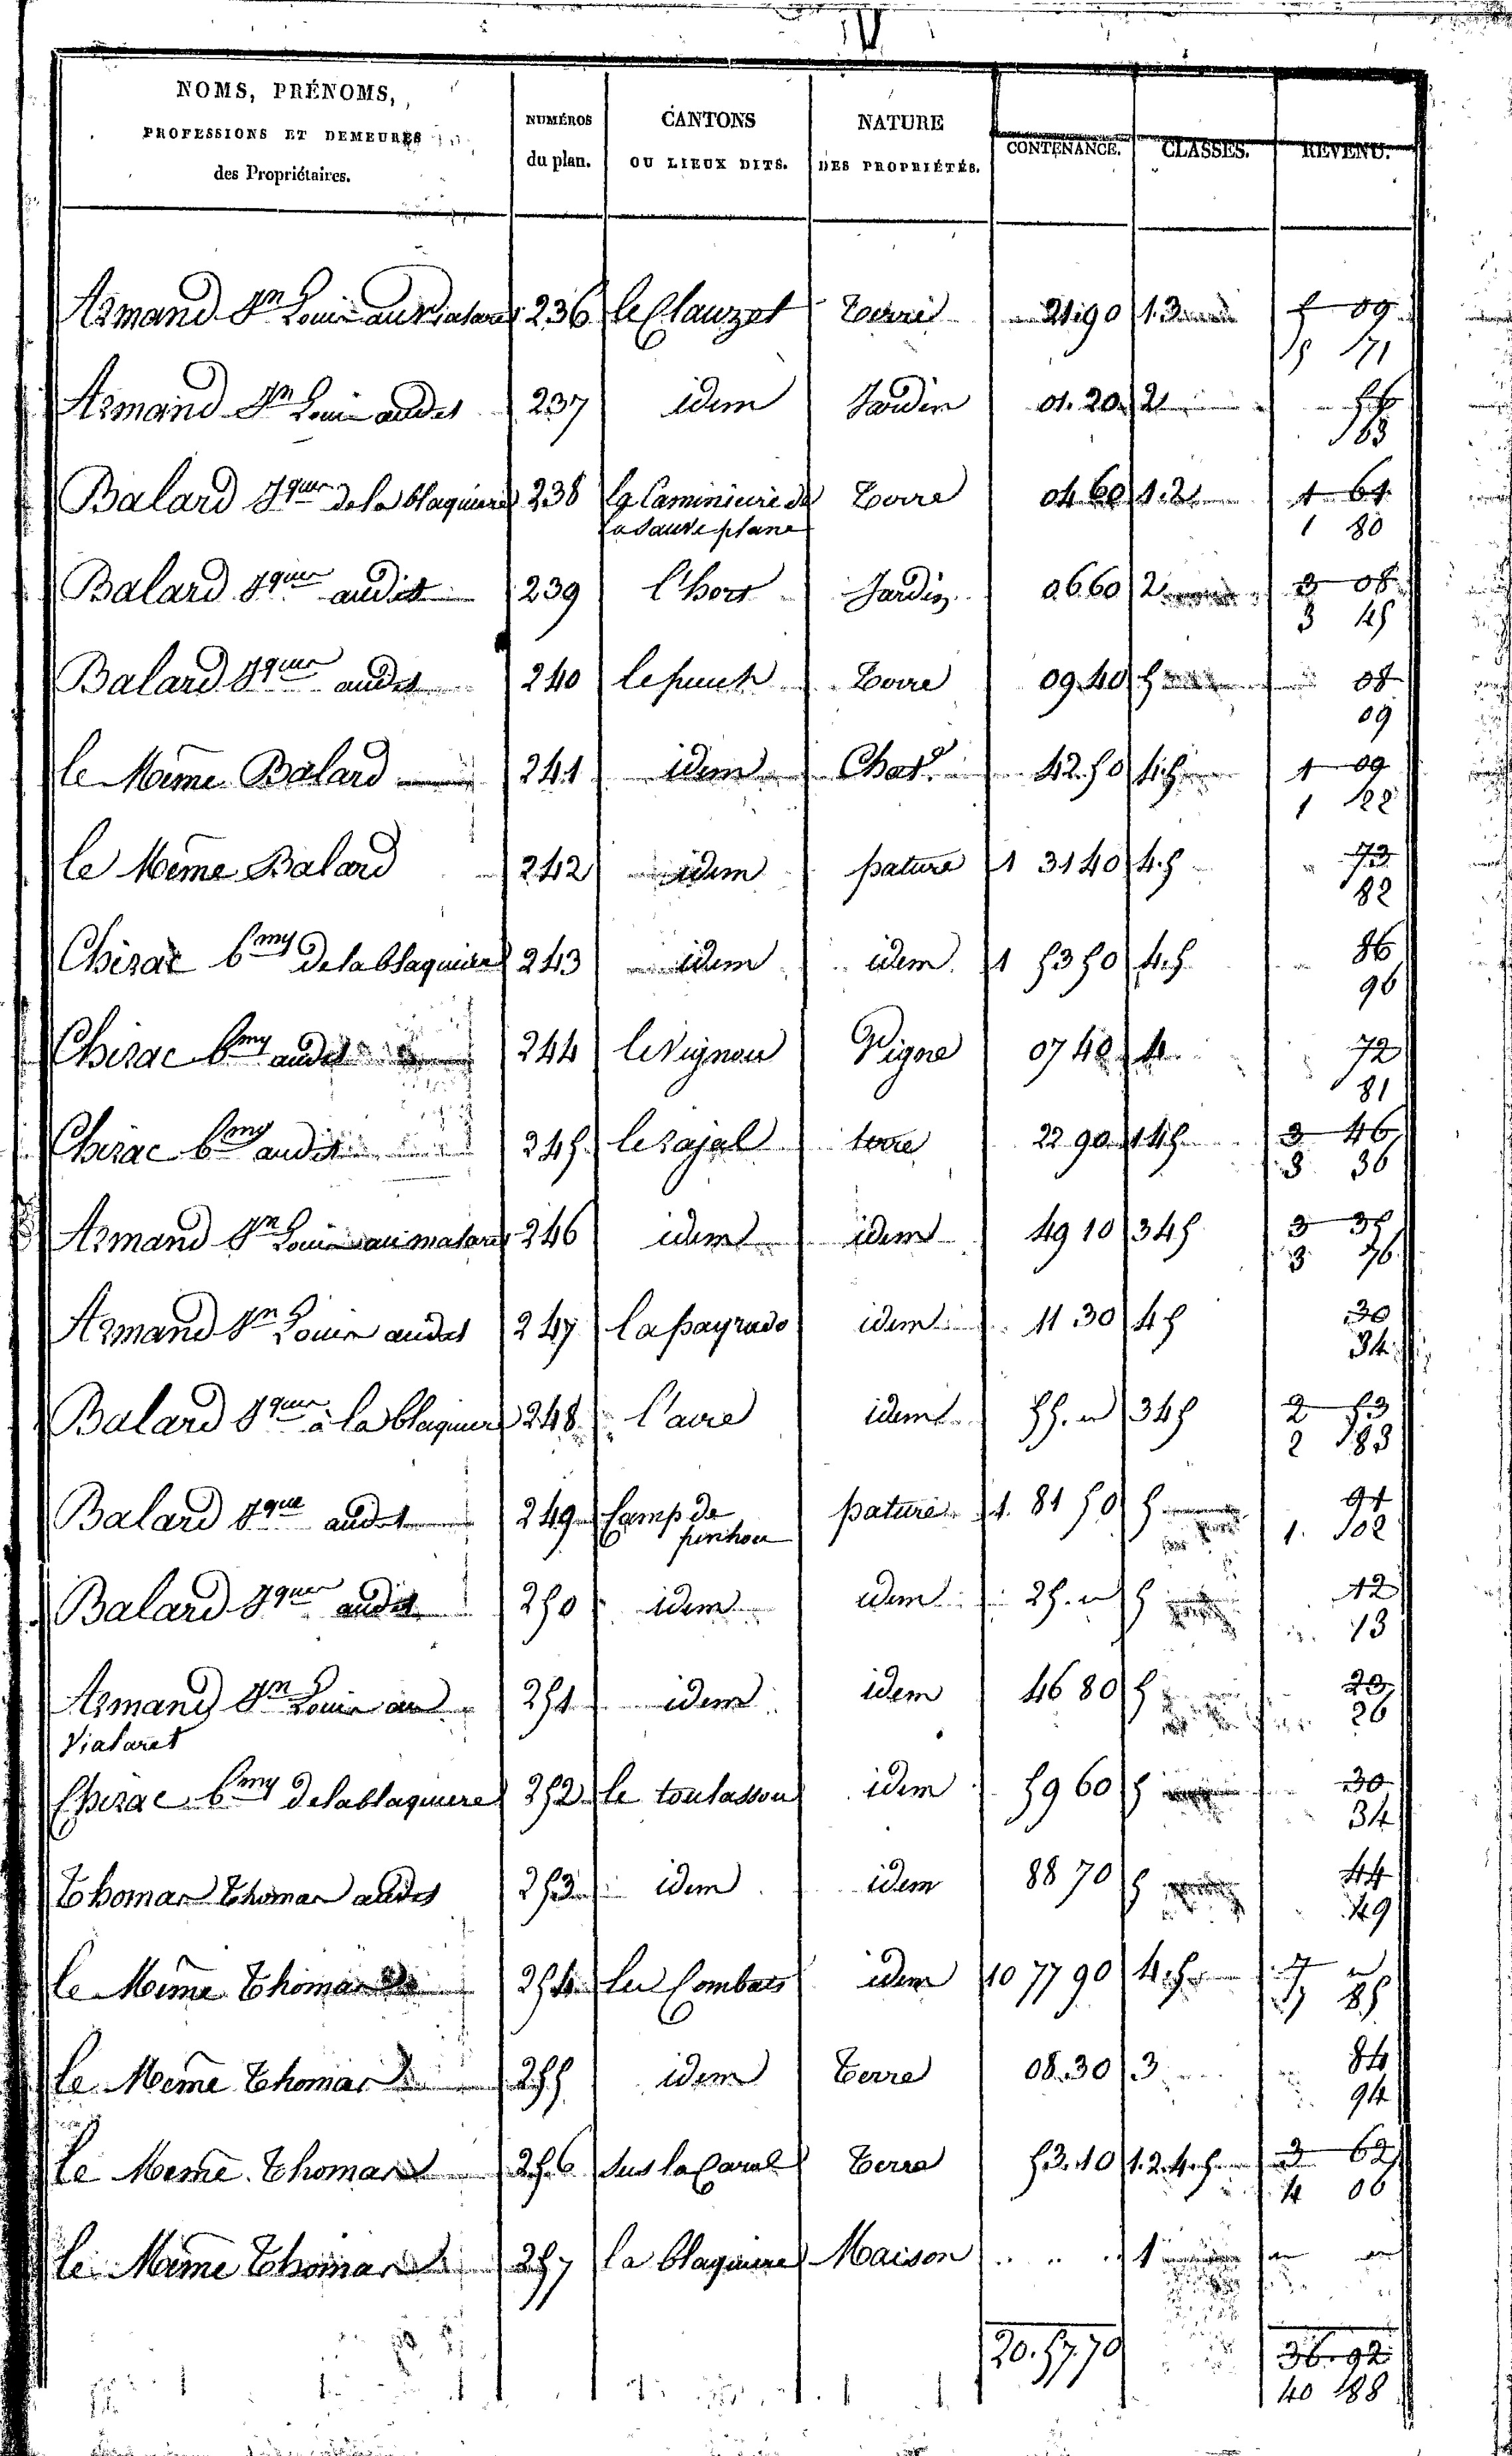 NOMS, PRÉNOMS, PROFESSIONS ET DEMEURES des Propriétaires. NUMÉROS du plan. CANTONS OU LIEUX DITS. NATURE DES PROPRIÉTÉS. CONTENANCE. CLASSES. REVENU.
Armand Jn Louis au Viala 236 le Clauzet terre 21 90 1.3 5 09
5 71
Armand Jn Louis audit 237 idem Jardin 01.20 2 56
63
Balard Jques de la blaquiere 238 la Caminieire de la sauve plane terre 04 60 1.2 1 61
1 80
Balard Jques audit 239 l'hort Jardin 06 60 2 3 08
3 45
Balard Jques audit 240 le puech terre 09.40 5 08
09
le Même Balard 241 idem Chat. 42.50 4.5 1 09
1 22
le Même Balard 242 idem pature 1 31 40 4.5 73
82
Chirac bmy de la blaquiere 243 idem idem 1 53 50 4.5 86
96
Chirac bmy audit 244 le Vignou Vigne 07 40 4 72
81
Chirac bmy audit 245 le rajal terre 22 90 1 4 5 3 46
3 36
Armand Jn Louis au 246 idem idem 49 10 3 4 5 3 35
3 76
Armand Jn Louis audit 247 la payrado idem 11 30 4 5 30
34
Balard Jques à la blaquiere 248 l'aire idem 55. " 3 4 5 2 53
2 83
Balard Jques audit 249 Camp de pinhou pature 1. 81 50 5 91
1. 02
Balard Jques audit 250 idem idem 25. " 5 12
13
Armand Jn Louis au Vialaret 251 idem idem 46 80 5 23
26
Chirac bmy de la blaquiere 252 le toulassou idem 59 60 5 30
34
Thomas Thomas audit 253 idem idem 88 70 5 44
49
le Même Thomas 254 les Combats idem 10 77 90 4.5 7 "
7 85
le Même Thomas 255 idem terre 08.30 3 84
94
le Même Thomas 256 sus la Caral terre 53.10 1.2.4.5 3 62
4 06
le Même Thomas 257 la blaquiere Maison 1
20.57.70 36.92
40 88